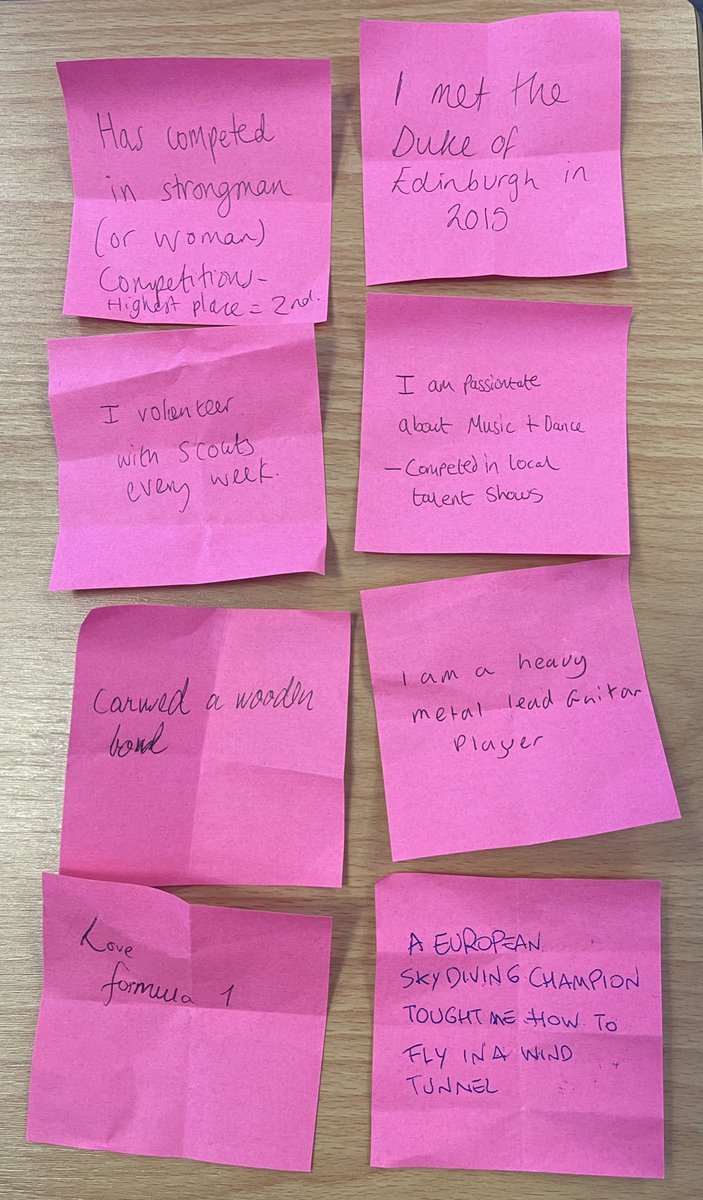 Has competed
in strongman
(or woman)
Competitions-
Highest place = 2nd.
I met the
Duke of
Edinburgh in
2015
I volunteer
with Scouts
every week.
I am passionate
about Music + Dance
- Competed in local
talent shows
Carved a wooden
bowl
I am a heavy
metal lead Guitar
Player
Love
formula 1
A EUROPEAN
SKYDIVING CHAMPION
TOUGHT ME HOW TO
FLY IN A WIND
TUNNEL